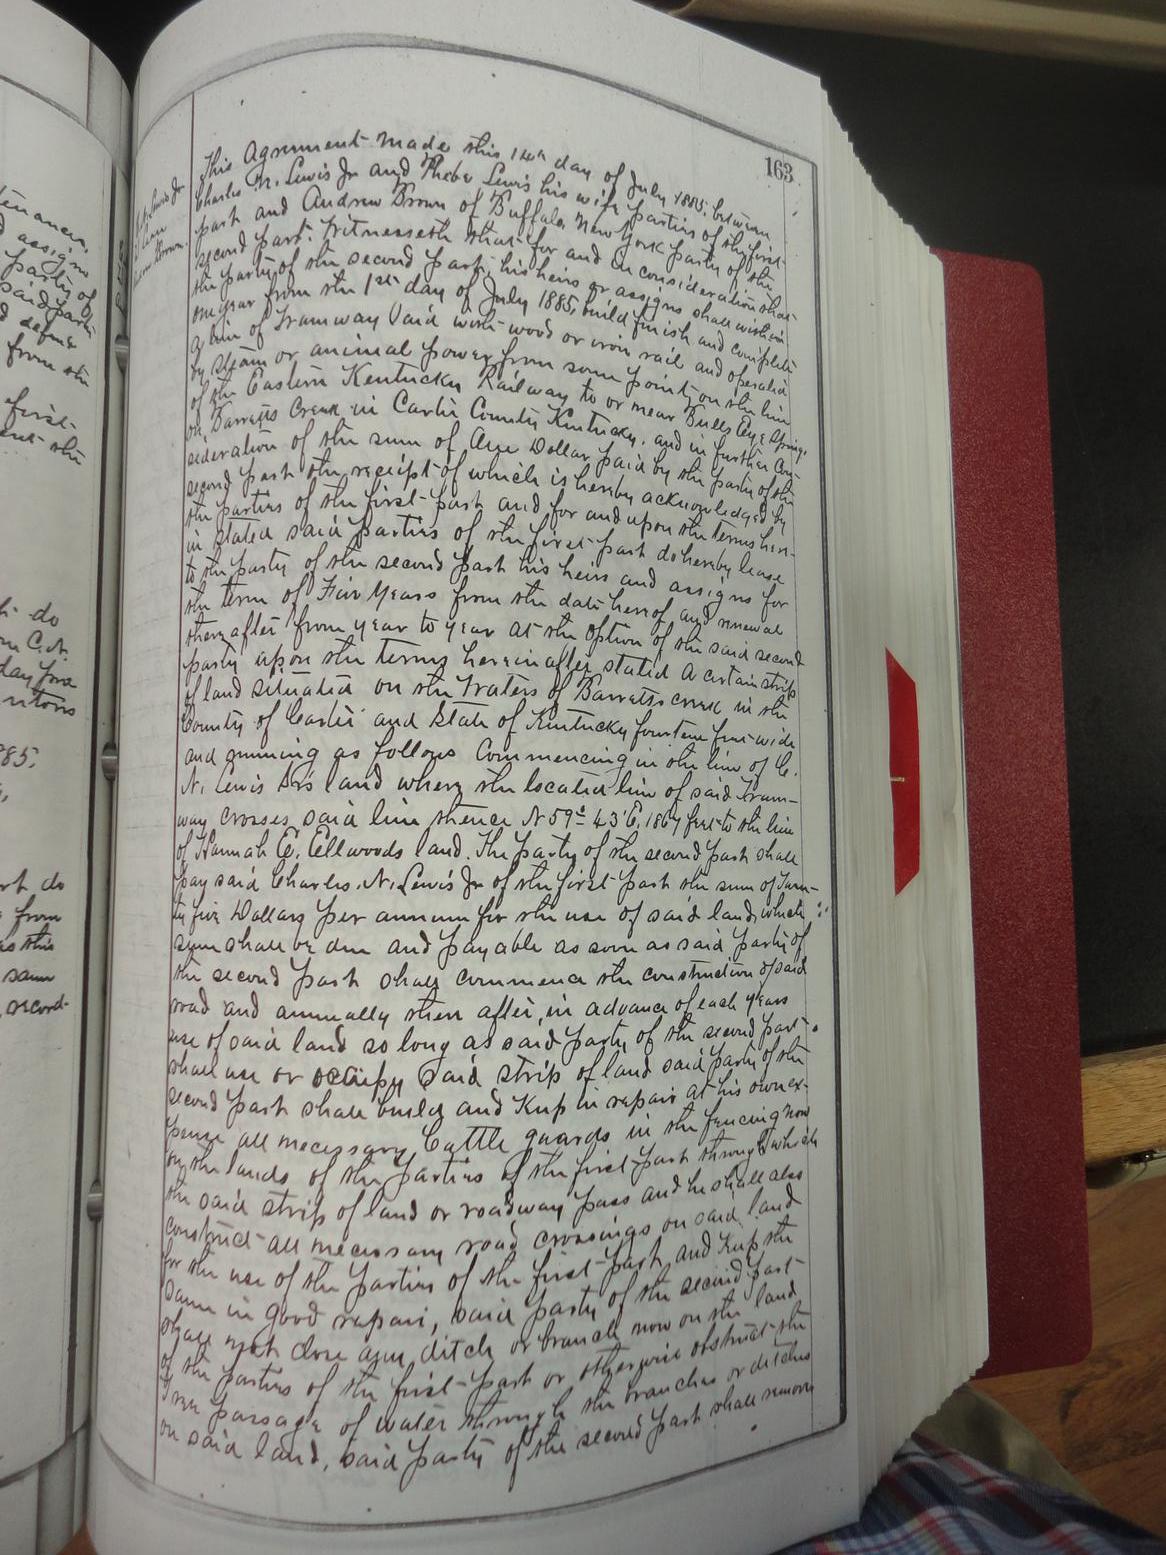 163
This Agreement made this 14th day of July 1885, between
Charles N. Lewis Jr and Pheba Lewis his wife parties of the first
part and Andrew Brown of Buffalo New York party of the
second part. Witnesseth that for and in consideration that
the party of the second part, his heirs or assigns shall within
one year from the 1st day of July 1885, build finish and complete
a line of Tramway laid with wood or iron rail and operated
by steam or animal power from some point on the line
of the Eastern Kentucky Railway to or near Bulls Eye Springs
on Barretts Creek in Carter County Kentucky, and in further Con-
sideration of the sum of One Dollar paid by the party of the
second part the receipt of which is hereby acknowledged by
the parties of the first part and for and upon the terms herein
in stated said parties of the first part do hereby lease
to the party of the second part his heirs and assigns for
the term of Five Years from the date hereof and renewal
thereafter from year to year at the option of the said second
party upon the terms hereinafter stated a certain strip
of land situated on the Waters of Barretts creek in the
County of Carter and State of Kentucky fourteen feet wide
and running as follows Commencing in the line of C.
N. Lewis Srs land where the located line of said Tram-
way crosses said line thence N 59° 43' E, 1867 feet to the line
of Hannah E. Ellwoods land. The party of the second part shall
pay said Charles. N. Lewis Jr of the first part the sum of Twen-
ty five Dollars per annum for the use of said land, which
sum shall be due and payable as soon as said party of
the second part shall commence the construction of said
road and annually there after, in advance of each years
use of said land so long as said party of the second part
shall use or occupy said strip of land said party of the
second part shall build and Keep in repair at his own ex-
pense all necessary Cattle guards in the fencing now
on the lands of the parties of the first part through which
the said strip of land or roadway pass and he shall also
construct all necessary road crossings on said land
for the use of the parties of the first part and Keep the
same in good repair, said party of the second part
shall not close any ditch or branch now on the land
of the parties of the first part or otherwise obstruct the
free passage of water through the branches or ditches
on said land, said party of the second part shall remove